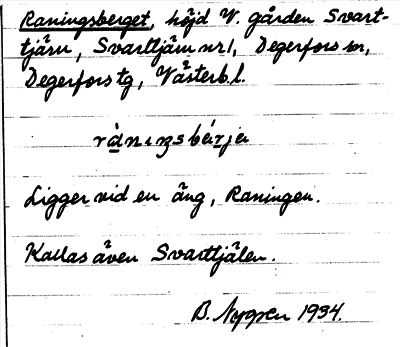 Raningsberget, höjd V. gården Svart-
tjärn, Svarttjärn nr 1, Degerfors sn,
Degerfors tg, Västerb. l.
Ligger vid en äng, Raningen.
Kallas även Svarttjälen.
B. Nygren 1934.